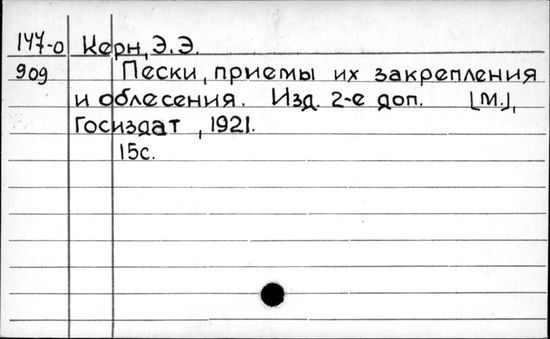 147-0 Керн, Э.Э.
909 Пески, приемы их закрепления
и облесения. Изд. 2-е доп. [М.],
Госиздат, 1921.
15с.